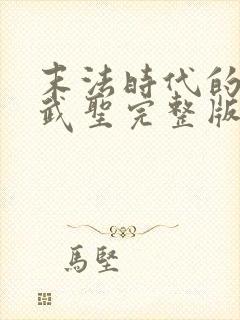 末法時代的
武聖完整版
馬堅